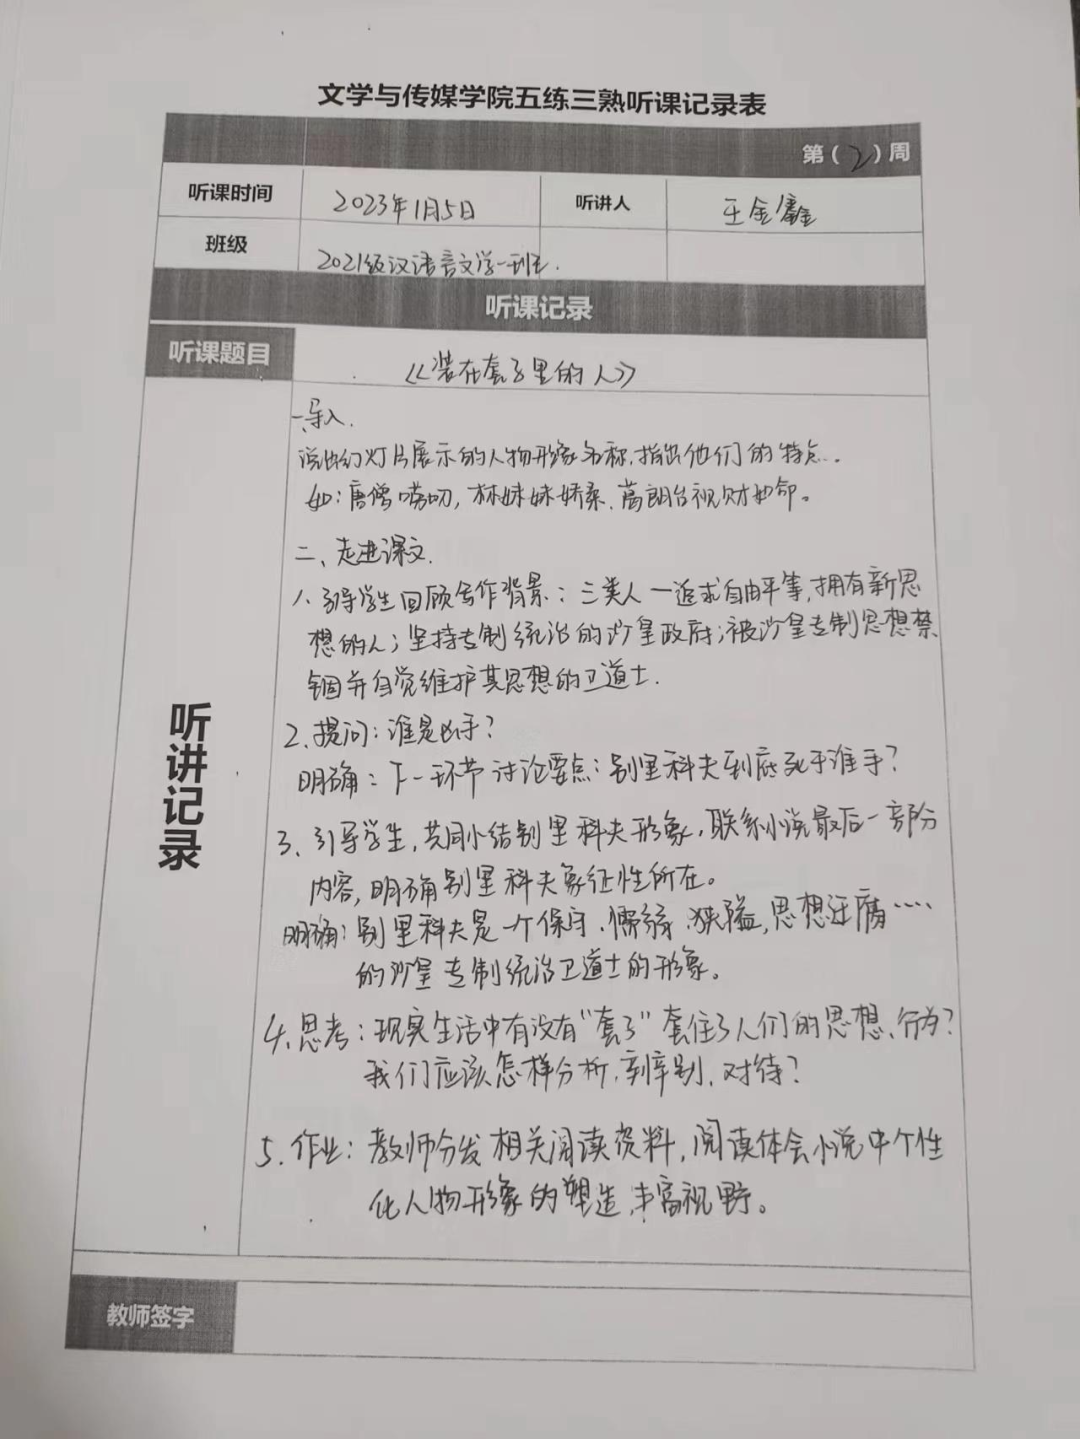 文学与传媒学院五练三熟听课记录表
第（2）周
听课时间 2023年1月5日 听讲人 王金鑫
班级 2021级汉语言文学一班.
听课记录
听课题目 《装在套子里的人》
听讲记录
一、导入.
说出幻灯片展示的人物形象名称,指出他们的特点..
如：唐僧唠叨,林妹妹娇柔,葛朗台视财如命。
二、走进课文.
1、引导学生回顾写作背景：三类人—追求自由平等,拥有新思
想的人；坚持专制统治的沙皇政府；被沙皇专制思想禁
锢并自觉维护其思想的卫道士.
2、提问：谁是凶手？
明确：下一环节讨论要点：别里科夫到底死于谁手？
3、引导学生,共同小结别里科夫形象,联系小说最后一部分
内容,明确别里科夫象征性所在。
明确：别里科夫是一个保守、懦弱、狭隘,思想迂腐····
的沙皇专制统治卫道士的形象。
4、思考：现实生活中有没有"套子"套住了人们的思想、行为？
我们应该怎样分析,辨别,对待？
5、作业：教师分发相关阅读资料,阅读体会小说中个性
化人物形象的塑造,丰富视野。
教师签字